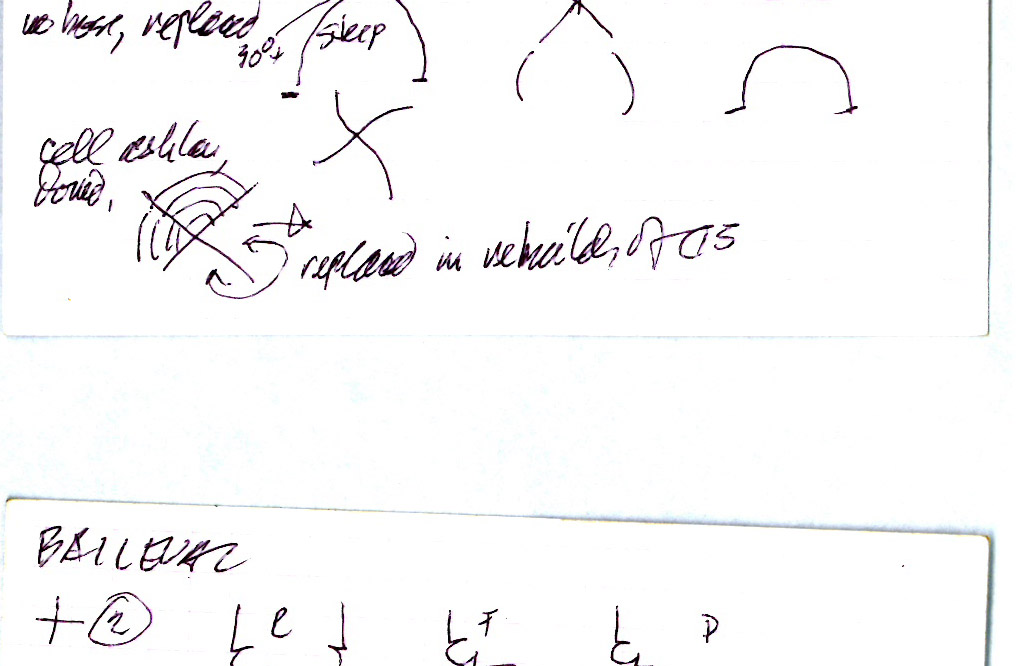 no base, replaced
30°+
steep
cell ashlar,
bond,
replaced in rebuilds, of C15
BAILLEVAL
+ 2 E F D